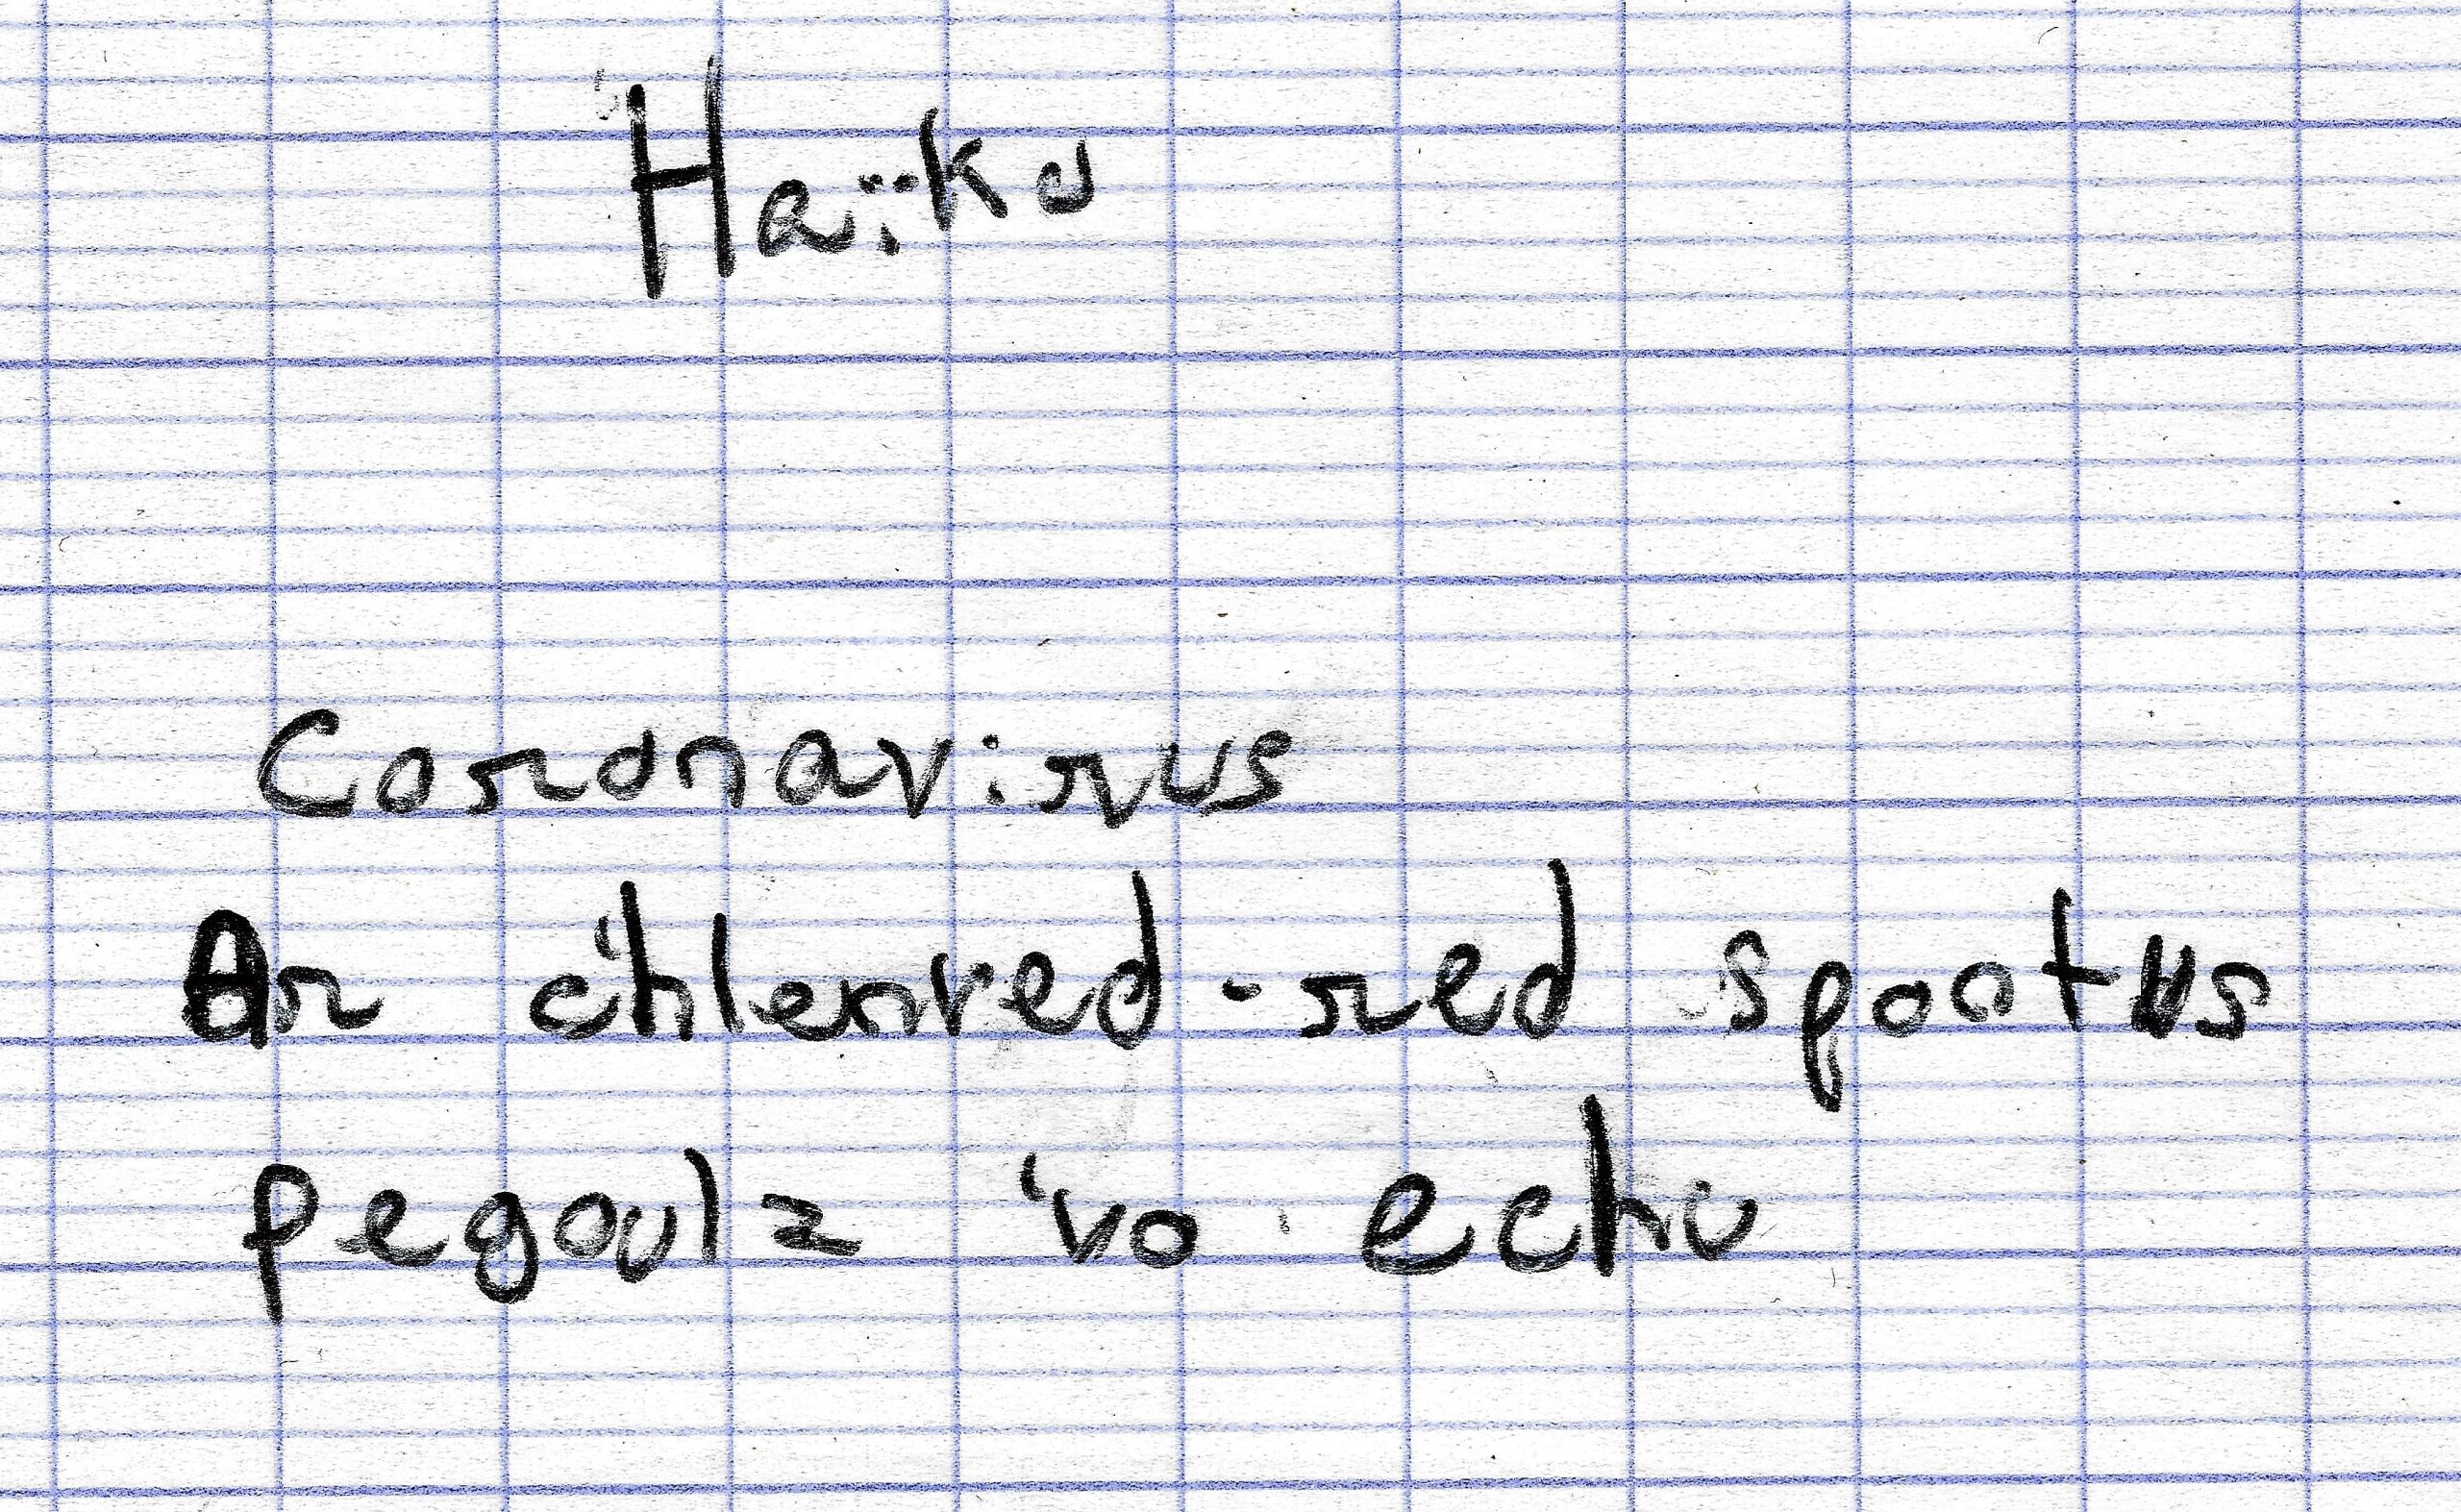 Haïku
Coronavirus
Ar c'hlenved-red spontus
Pegoulz 'vo echu